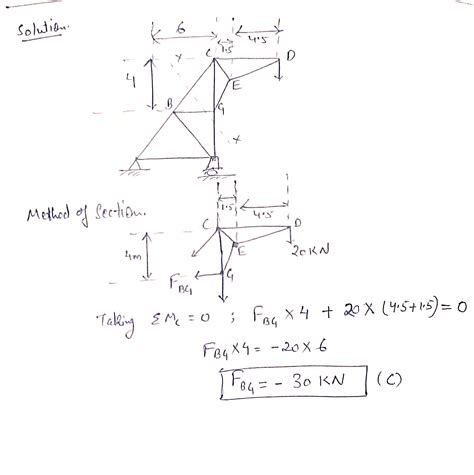 Solution.
6
1.5
4.5
x
C
D
4
E
B
G
x
Method of Section.
1.5
4.5
C
D
4m
E
20KN
F_BG
G
Taking ΣM_C = 0 ; F_BG × 4 + 20 × (4.5+1.5) = 0
F_BG × 4 = -20 × 6
F_BG = - 30 KN (C)